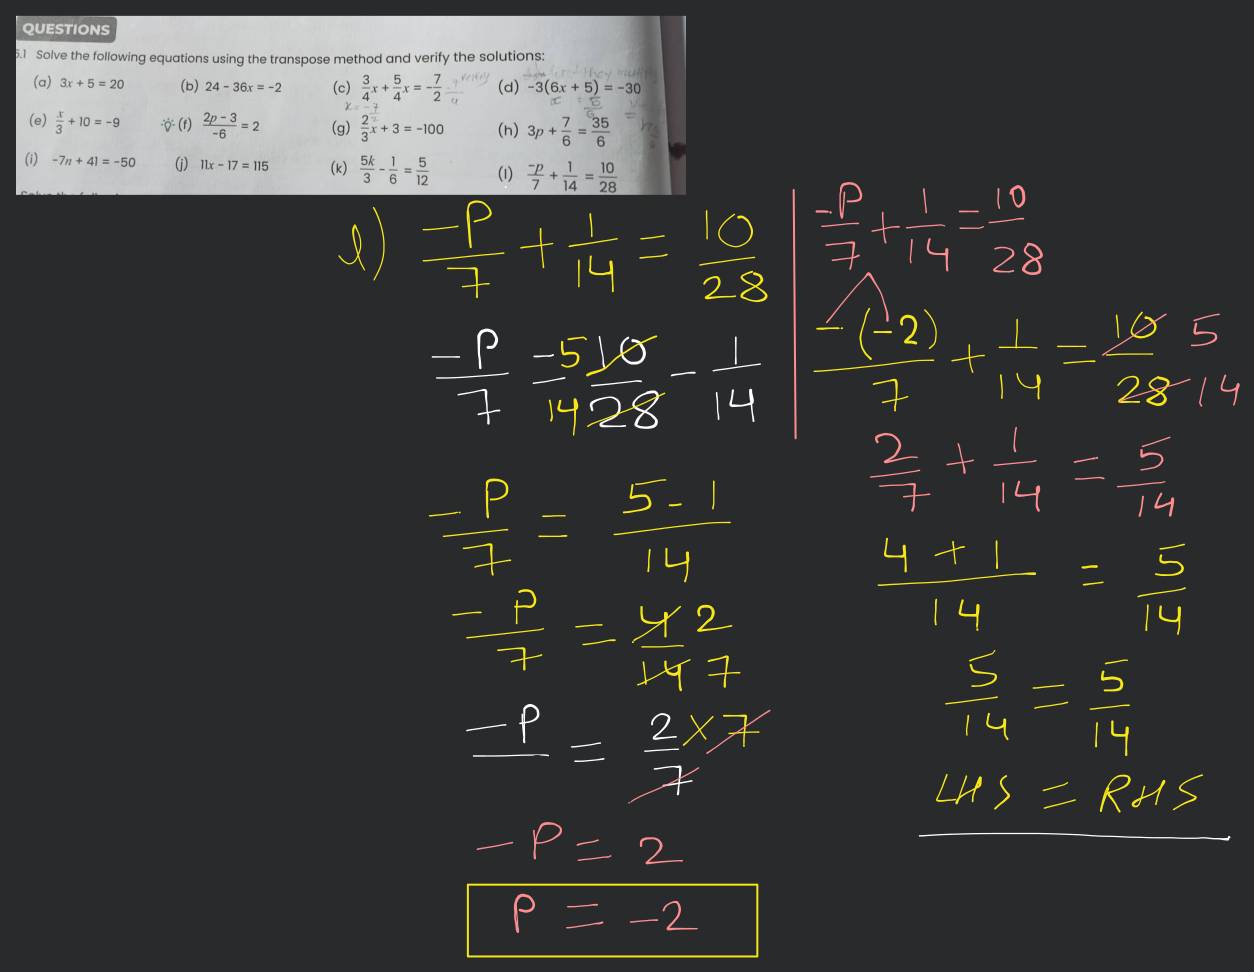 QUESTIONS
5.1 Solve the following equations using the transpose method and verify the solutions:
(a) 3x + 5 = 20 (b) 24 - 36x = -2 (c) 3/4 x + 5/4 x = -7/2 (d) -3(6x + 5) = -30
(e) x/3 + 10 = -9 (f) (2p - 3)/-6 = 2 (g) 2/3 x + 3 = -100 (h) 3p + 7/6 = 35/6
(i) -7n + 41 = -50 (j) 11x - 17 = 115 (k) 5k/3 - 1/6 = 5/12 (l) -p/7 + 1/14 = 10/28
l) -P/7 + 1/14 = 10/28
-P/7 - 5/14 10/28 - 1/14
-P/7 = (5 - 1)/14
-P/7 = 4/14 2/7
-P = 2/7 × 7
-P = 2
P = -2
-P/7 + 1/14 = 10/28
-(-2)/7 + 1/14 = 10/28 5/14
2/7 + 1/14 = 5/14
(4 + 1)/14 = 5/14
5/14 = 5/14
LHS = RHS